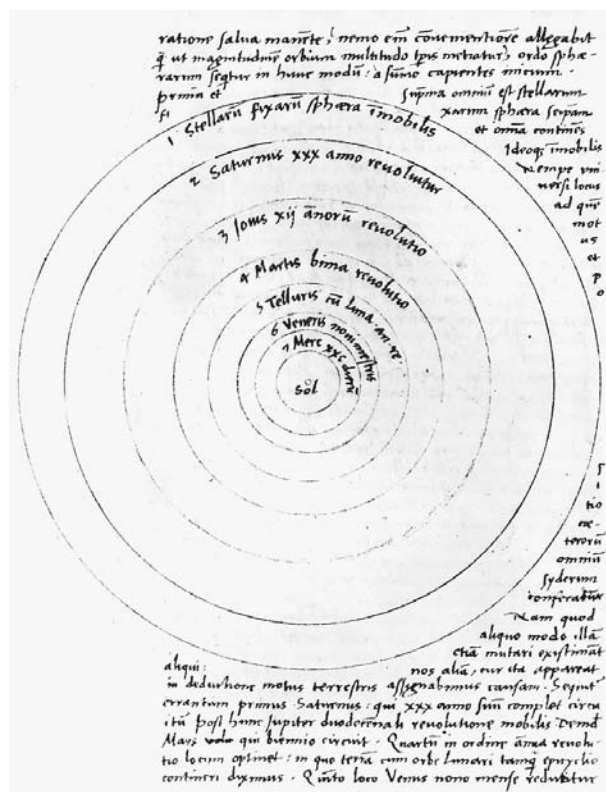 ratione salua manēte, nemo em̄ conuenientiorē allegabit
q̄ ut magnitudinē orbium multitudo tp̄is metiatur, ordo sphæ-
rarum seqtur in hunc modū: a sūmo capientes inicium.
prima et suprema omniū est stellarum
fi xarum sphæra seipam
et omīa continēs
Ideoqꝫ īmobilis
Nempe vni
uersi locus
ad quē
mot
us
et
p
o
1 Stellarū fixarū sphæra īmobilis
2 Saturnus xxx anno reuoluitur
3 Iouis xij añorū reuolutio
4 Martis bima reuolutio
5 Telluris cū luna an. re.
6 Veneris nonimestris
7 Merc xxc dierū
Sol
s
i
tio
cæ-
terorū
omniū
syderum
conferatur
Nam quod
aliquo modo illā
etiā mutari existimāt
aliqui: nos aliā, cur ita appareat
in deductione motus terrestris assignabimus causam. Sequit
errantium primus Saturnus: qui xxx anno suū complet circu
itū post hunc Iupiter duodecēnali reuolutione mobilis Demū
Mars qui biennio circuit. Quartū in ordine annua reuolu-
tio locum optinet: in quo terrā cum orbe lunari tamqꝫ epicyclo
contineri diximus. Quinto loco Venus nono mense reducitur